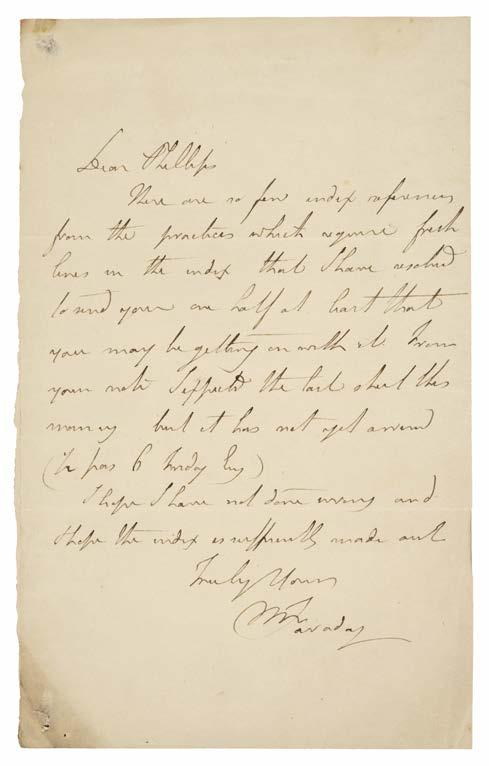 Dear Phillips
There are so few index references
from the practices which require fresh
lines in the index that I have resolved
to send you one half at least that
you may be getting on with it. From
your note I expected the last sheet this
morning but it has not yet arrived
(½ past 6 Friday Evg)
I hope I have not done wrong and
I hope the index is sufficiently made out
Truly Yours
M Faraday